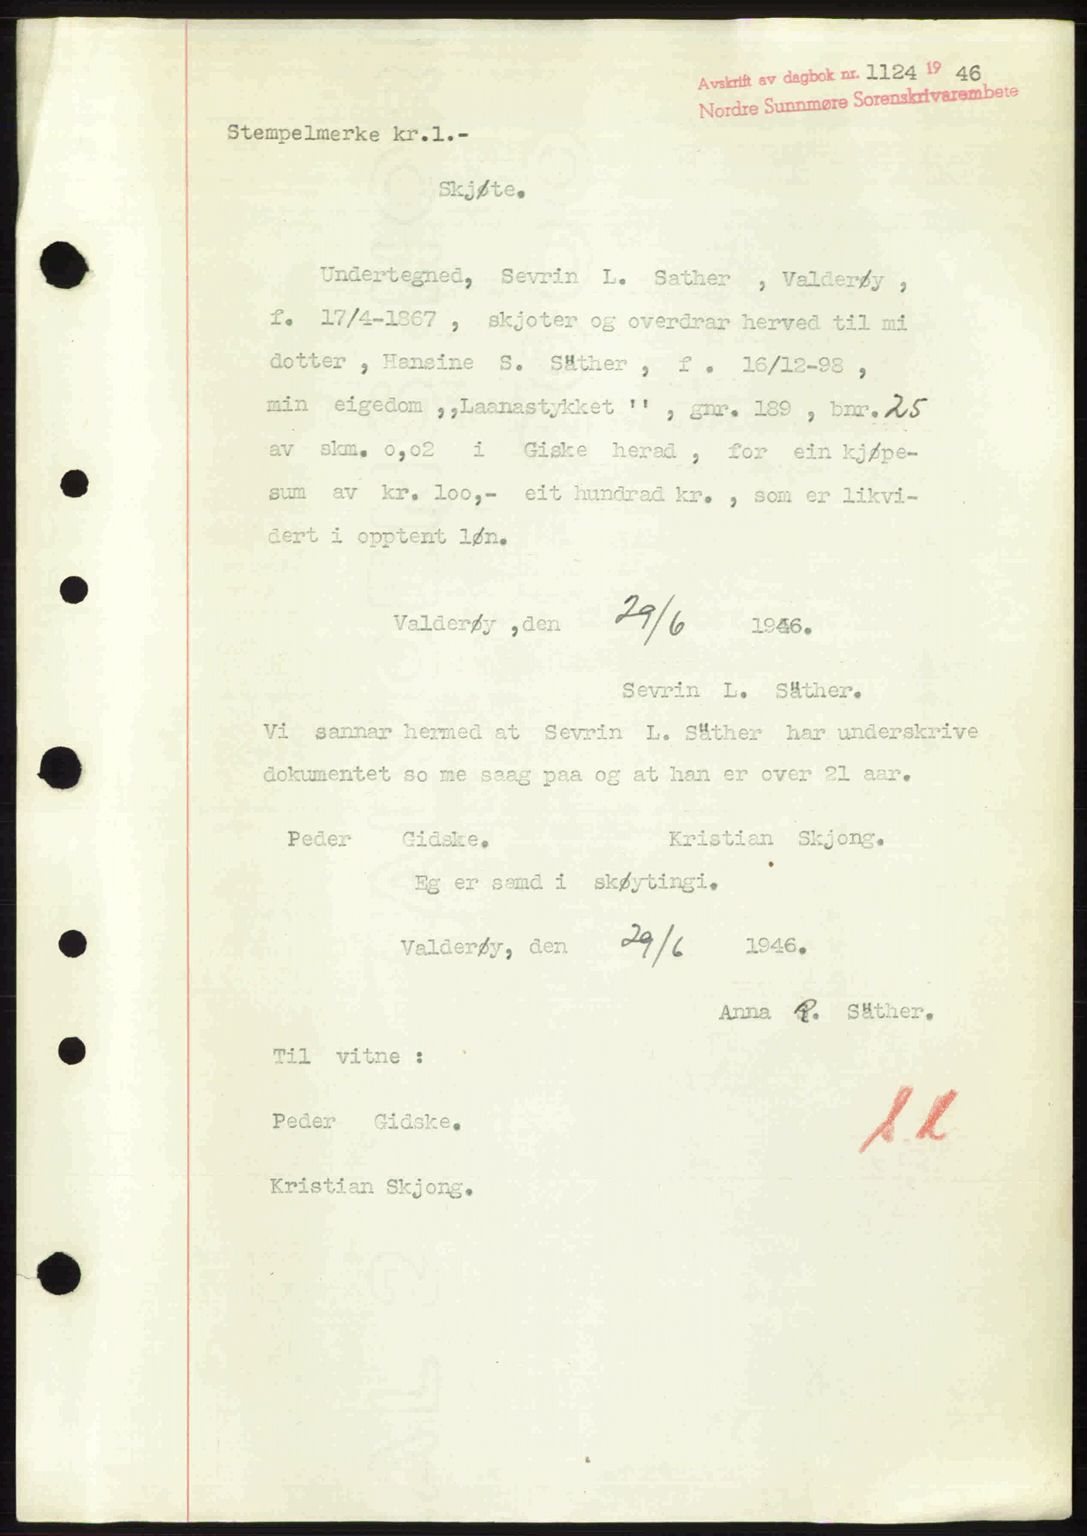 Avskrift av dagbok nr. 1124 19 46
Nordre Sunnmøre Sorenskrivarembete
Stempelmerke kr.1.-
Skjøte.
Undertegned, Sevrin L. Sather , Valderøy ,
f. 17/4-1867 , skjoter og overdrar herved til mi
dotter , Hansine S. Säther , f . 16/12-98 ,
min eigedom ,,Laanastykket '' , gnr. 189 , bnr. 25
av skm. o,o2 i Giske herad , for ein kjøpe-
sum av kr. loo,- eit hundrad kr. , som er likvi-
dert i opptent løn.
Valderøy ,den 29/6 1946.
Sevrin L. Säther.
Vi sannar hermed at Sevrin L. Säther har underskrive
dokumentet so me saag paa og at han er over 21 aar.
Peder Gidske. Kristian Skjong.
Eg er samd i skøytingi.
Valderøy, den 29/6 1946.
Anna P. Säther.
Til vitne :
Peder Gidske.
Kristian Skjong.